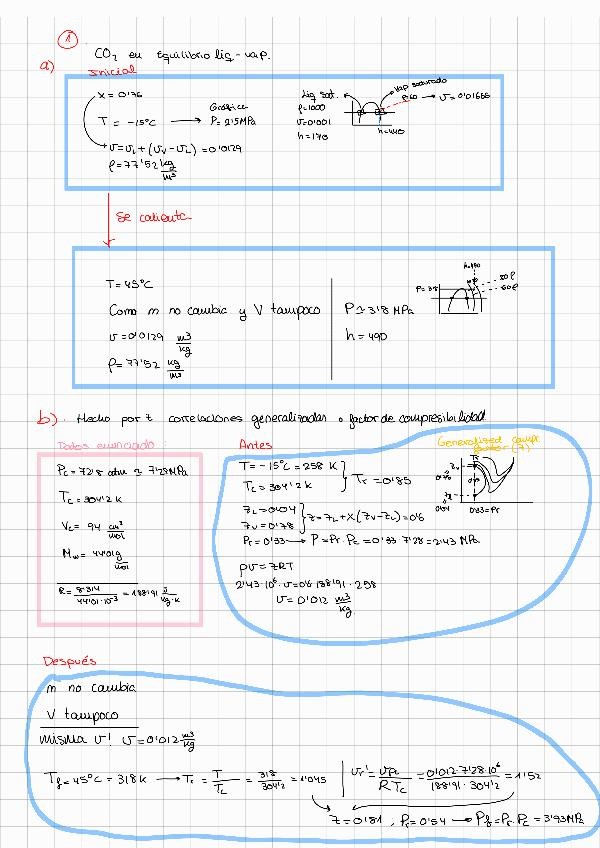 1
CO₂ en Equilibrio liq-vap.
a)
Inicial
x = 0'76
T = -15°C → Gráfica P = 2'15MPa
v = v_L + (v_V - v_L) = 0'0129
ρ = 77'52 kg/m³
Liq sat.
ρ=1000
v=0'001
h=170
Vap saturado
ρ=60 → v=0'01666
h=440
Se calienta
T = 45°C
Como m no cambia y V tampoco
v = 0'0129 m³/kg
ρ = 77'52 kg/m³
P ≃ 3'8 MPa
h = 490
P=3'8
h=490
80ρ
60ρ
b). Hecho por z correlaciones generalizadas o factor de compresibilidad
Datos enunciado:
Pc = 72'8 atm ≃ 7'28MPa
Tc = 304'2 K
Vc = 94 cm³/mol
Mw = 44'01 g/mol
R = 8'314/44'01·10⁻³ = 188'91 J/kg·K
Antes
T = -15°C = 258 K
Tc = 304'2 K
Tr = 0'85
z_L = 0'04
z_V = 0'78
z = z_L + x(z_V - z_L) = 0'6
Pr = 0'33 → P = Pr·Pc = 0'33·7'28 = 2'43 MPa
pv = zRT
2'43·10⁶·v = 0'6·188'91·258
v = 0'012 m³/kg
Generalised compr. factor (z)
Tr
0'04
0'33=Pr
Después
m no cambia
V tampoco
misma v! v = 0'012 m³/kg
Tf = 45°C = 318K → Tr = T/Tc = 318/304'2 = 1'045
vr' = vPc/RTc = 0'012·7'28·10⁶/188'91·304'2 = 1'52
z = 0'81, Pr = 0'54 → Pf = Pr·Pc = 3'93MPa